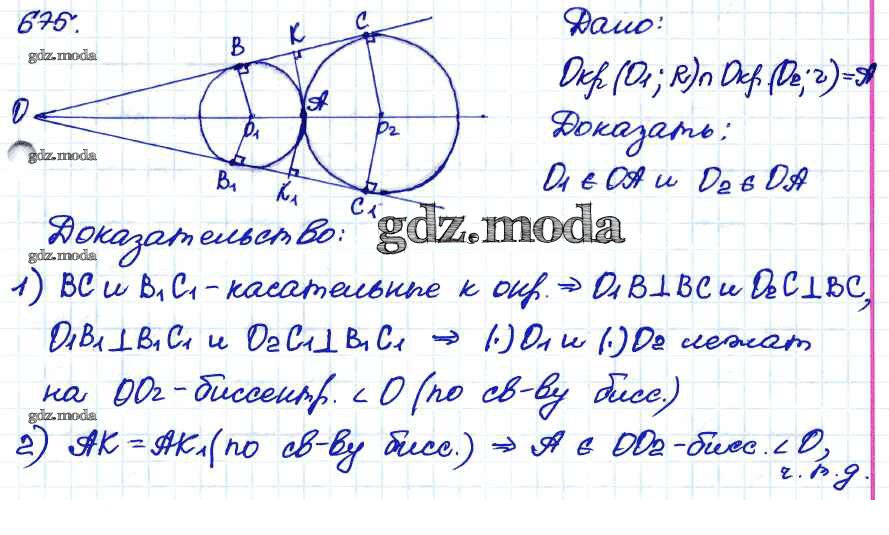 675.
gdz.moda
Дано:
B K C
Окр.(O1; R)∩Окр.(O2; r)=A
O A
O1 O2
Доказать:
gdz.moda
O1 ∈ OA и O2 ∈ OA
B1 K1 C1
gdz.moda
Доказательство:
gdz.moda
1) BC и B1C1 - касательные к окр. ⇒ O1B⊥BC и O2C⊥BC,
O1B1⊥B1C1 и O2C1⊥B1C1 ⇒ (·)O1 и (·)O2 лежат
на OO2 - биссектр. ∠O (по св-ву бисс.)
gdz.moda
2) AK = AK1 (по св-ву бисс.) ⇒ A ∈ OO2 - бисс. ∠O,
ч. т. д.